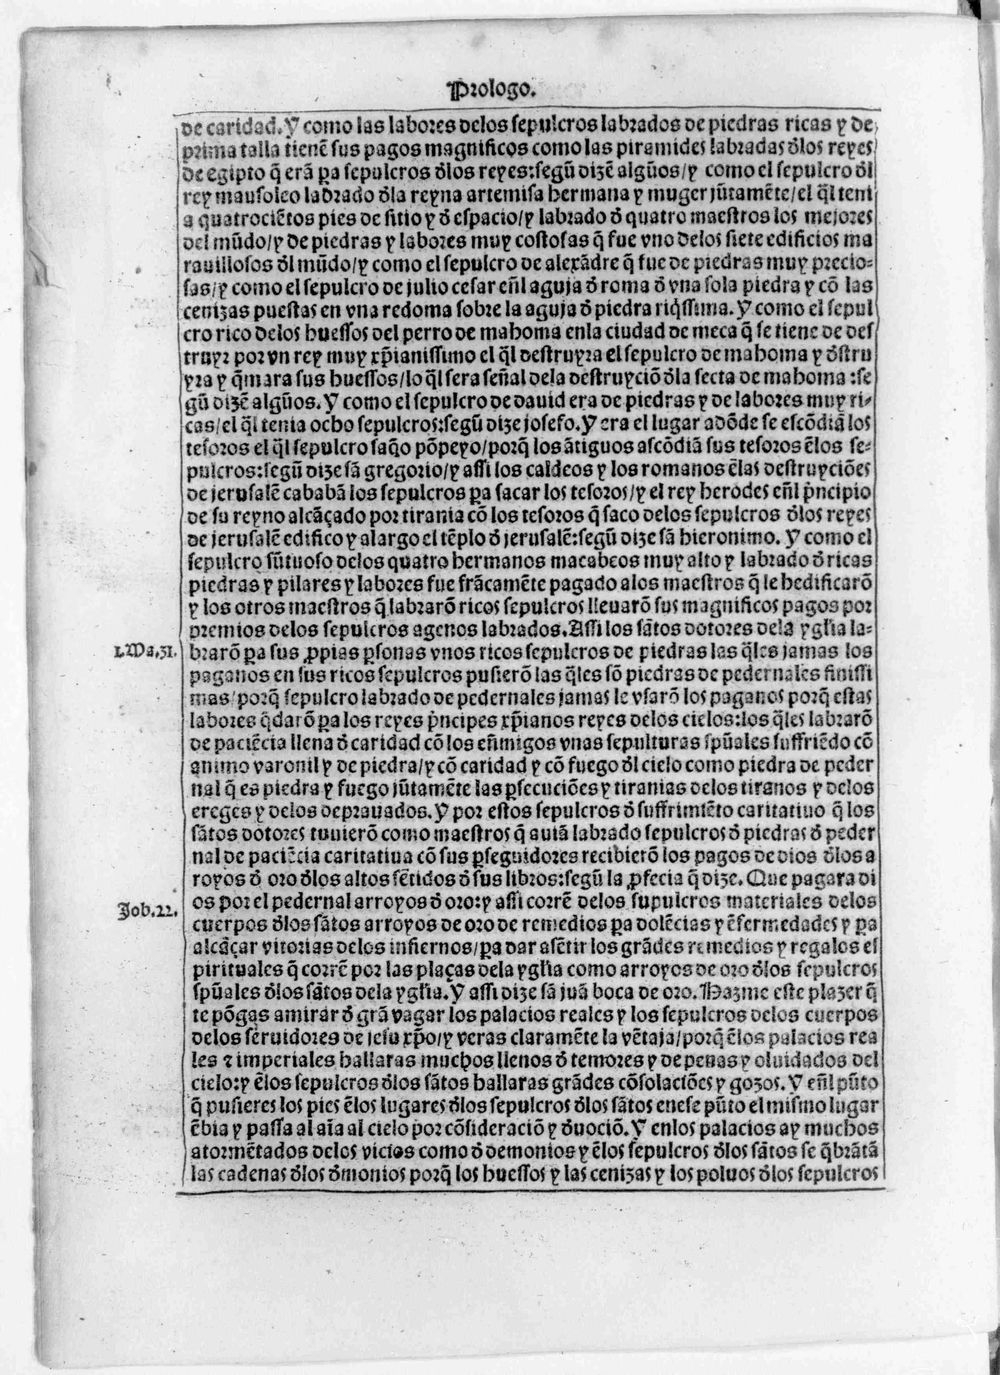 Prologo.
de caridad. Y como las labores delos sepulcros labrados de piedras ricas y de
prima talla tienẽ sus pagos magnificos como las piramides labradas d̃los reyes
de egipto q̃ erã ꝑa sepulcros d̃los reyes: segũ dizẽ algũos/ y como el sepulcro d̃l
rey mausoleo labrado d̃la reyna artemisa hermana y muger jũtamẽte/ el q̃l teni
a quatrociẽtos pies de sitio y d̃ espacio/ y labrado d̃ quatro maestros los mejores
del mũdo/ y de piedras y labores muy costosas q̃ fue vno delos siete edificios ma
rauillosos d̃l mũdo/ y como el sepulcro de alexãdre q̃ fue de piedras muy precio-
sas/ y como el sepulcro de julio cesar eñl aguja d̃ roma d̃ vna sola piedra y cõ las
cenizas puestas en vna redoma sobre la aguja d̃ piedra riq̃ssima. Y como el sepul
cro rico delos huessos del perro de mahoma enla ciudad de meca q̃ se tiene de des
truyr por vn rey muy xp̃ianissimo el q̃l destruyra el sepulcro de mahoma y d̃stru
yra y q̃mara sus huessos/ lo q̃l sera señal dela destruyciõ d̃la secta de mahoma: se
gũ dizẽ algũos. Y como el sepulcro de dauid era de piedras y de labores muy ri-
cas/ el q̃l tenia ocho sepulcros: segũ dize josefo. Y era el lugar adõde se escõdiã los
tesoros el q̃l sepulcro saq̃o põpeyo/ porq̃ los ãtiguos ascõdiã sus tesoros ẽlos se-
pulcros: segũ dize sã gregorio/ y assi los caldeos y los romanos ẽlas destruyciões
de jerusalẽ cababã los sepulcros ꝑa sacar los tesoros/ y el rey herodes eñl p̃ncipio
de su reyno alcãçado por tirania cõ los tesoros q̃ saco delos sepulcros d̃los reyes
de jerusalẽ edifico y alargo el tẽplo d̃ jerusalẽ: segũ dize sã hieronimo. Y como el
sepulcro sũtuoso delos quatro hermanos macabeos muy alto y labrado d̃ ricas
piedras y pilares y labores fue frãcamẽte pagado alos maestros q̃ le hedificarõ
y los otros maestros q̃ labrarõ ricos sepulcros lleuarõ sus magnificos pagos por
premios delos sepulcros agenos labrados. Assi los sãtos dotores dela ygl̃ia la-
1. Ma. 31.
brarõ ꝑa sus ꝓpias ꝑsonas vnos ricos sepulcros de piedras las q̃les jamas los
paganos en sus ricos sepulcros pusierõ las q̃les sõ piedras de pedernales finissi
mas/ porq̃ sepulcro labrado de pedernales jamas le vsarõ los paganos porq̃ estas
labores q̃darõ ꝑa los reyes p̃ncipes xp̃ianos reyes delos cielos: los q̃les labrarõ
de paciẽcia llena d̃ caridad cõ los eñmigos vnas sepulturas sp̃uales suffriẽdo cõ
animo varonil y de piedra/ y cõ caridad y cõ fuego d̃l cielo como piedra de peder
nal q̃ es piedra y fuego jũtamẽte las ꝑsecuciões y tiranias delos tiranos y delos
ereges y delos deprauados. Y por estos sepulcros d̃ suffrimiẽto caritatiuo q̃ los
sãtos dotores tuuierõ como maestros q̃ auiã labrado sepulcros d̃ piedras d̃ peder
nal de paciẽcia caritatiua cõ sus ꝑseguidores recibierõ los pagos de dios d̃los a
royos d̃ oro d̃los altos sẽtidos d̃ sus libros: segũ la ꝓfecia q̃ dize. Que pagara di
Job. 22.
os por el pedernal arroyos d̃ oro: y assi corrẽ delos supulcros materiales delos
cuerpos d̃los sãtos arroyos de oro de remedios ꝑa dolẽcias y ẽfermedades y ꝑa
alcãçar vitorias delos infiernos/ ꝑa dar asẽtir los grãdes remedios y regalos es
pirituales q̃ corrẽ por las plaças dela ygl̃ia como arroyos de oro d̃los sepulcros
sp̃uales d̃los sãtos dela ygl̃ia. Y assi dize sã juã boca de oro. Hazme este plazer q̃
te põgas amirar d̃ grã vagar los palacios reales y los sepulcros delos cuerpos
delos seruidores de jesu xp̃o/ y veras claramẽte la vẽtaja/ porq̃ ẽlos palacios rea
les ⁊ imperiales hallaras muchos llenos d̃ temores y de penas y oluidados del
cielo: y ẽlos sepulcros d̃los sãtos hallaras grãdes cõsolaciões y gozos. Y eñl pũto
q̃ pusieres los pies ẽlos lugares d̃los sepulcros d̃los sãtos enese pũto el mismo lugar
ẽbia y passa al aĩa al cielo por cõsideraciõ y d̃uociõ. Y enlos palacios ay muchos
atormẽtados delos vicios como d̃ demonios y ẽlos sepulcros d̃los sãtos se q̃brãtã
las cadenas d̃los d̃monios porq̃ los huessos y las cenizas y los poluos d̃los sepulcros